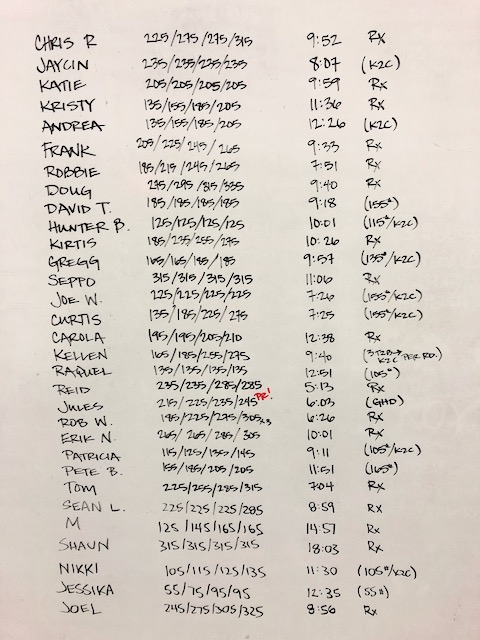 CHRIS R 225/275/275/315 9:52 RX
JAYCIN 235/235/235/235 8:07 (K2C)
KATIE 205/205/205/205 9:59 RX
KRISTY 135/155/185/205 11:36 RX
ANDREA 135/155/185/205 12:26 (K2C)
FRANK 205/225/245/265 9:33 RX
ROBBIE 185/215/245/265 7:51 RX
DOUG 275/295/315/335 9:40 RX
DAVID T. 185/185/185/185 9:18 (155#)
HUNTER B. 125/125/125/125 10:01 (115#/K2C)
KIRTIS 185/235/255/275 10:26 RX
GREGG 165/165/185/185 9:57 (135#/K2C)
SEPPO 315/315/315/315 11:06 RX
JOE W. 225/225/225/225 7:26 (155#/K2C)
CURTIS 135/185/225/275 7:25 (155#/K2C)
CAROLA 195/195/205/210 12:38 RX
KELLEN 165/185/255/275 9:40 (3 T2B→K2C PER RD.)
RAQUEL 135/135/135/135 12:51 (105#)
REID 235/235/285/285 5:13 RX
JULES 215/225/235/245 PR! 6:03 (GHD)
ROB W. 185/225/275/305x3 6:26 RX
ERIK N. 265/265/285/305 10:01 RX
PATRICIA 115/125/135/145 9:11 (105#/K2C)
PETE B. 155/185/205/205 11:51 (165#)
TOM 225/255/285/315 7:04 RX
SEAN L. 225/225/225/285 8:59 RX
M 125/145/165/165 14:57 RX
SHAUN 315/315/315/315 18:03 RX
NIKKI 105/115/125/135 11:30 (105#/K2C)
JESSIKA 55/75/95/95 12:35 (55#)
JOEL 245/275/305/325 8:56 RX